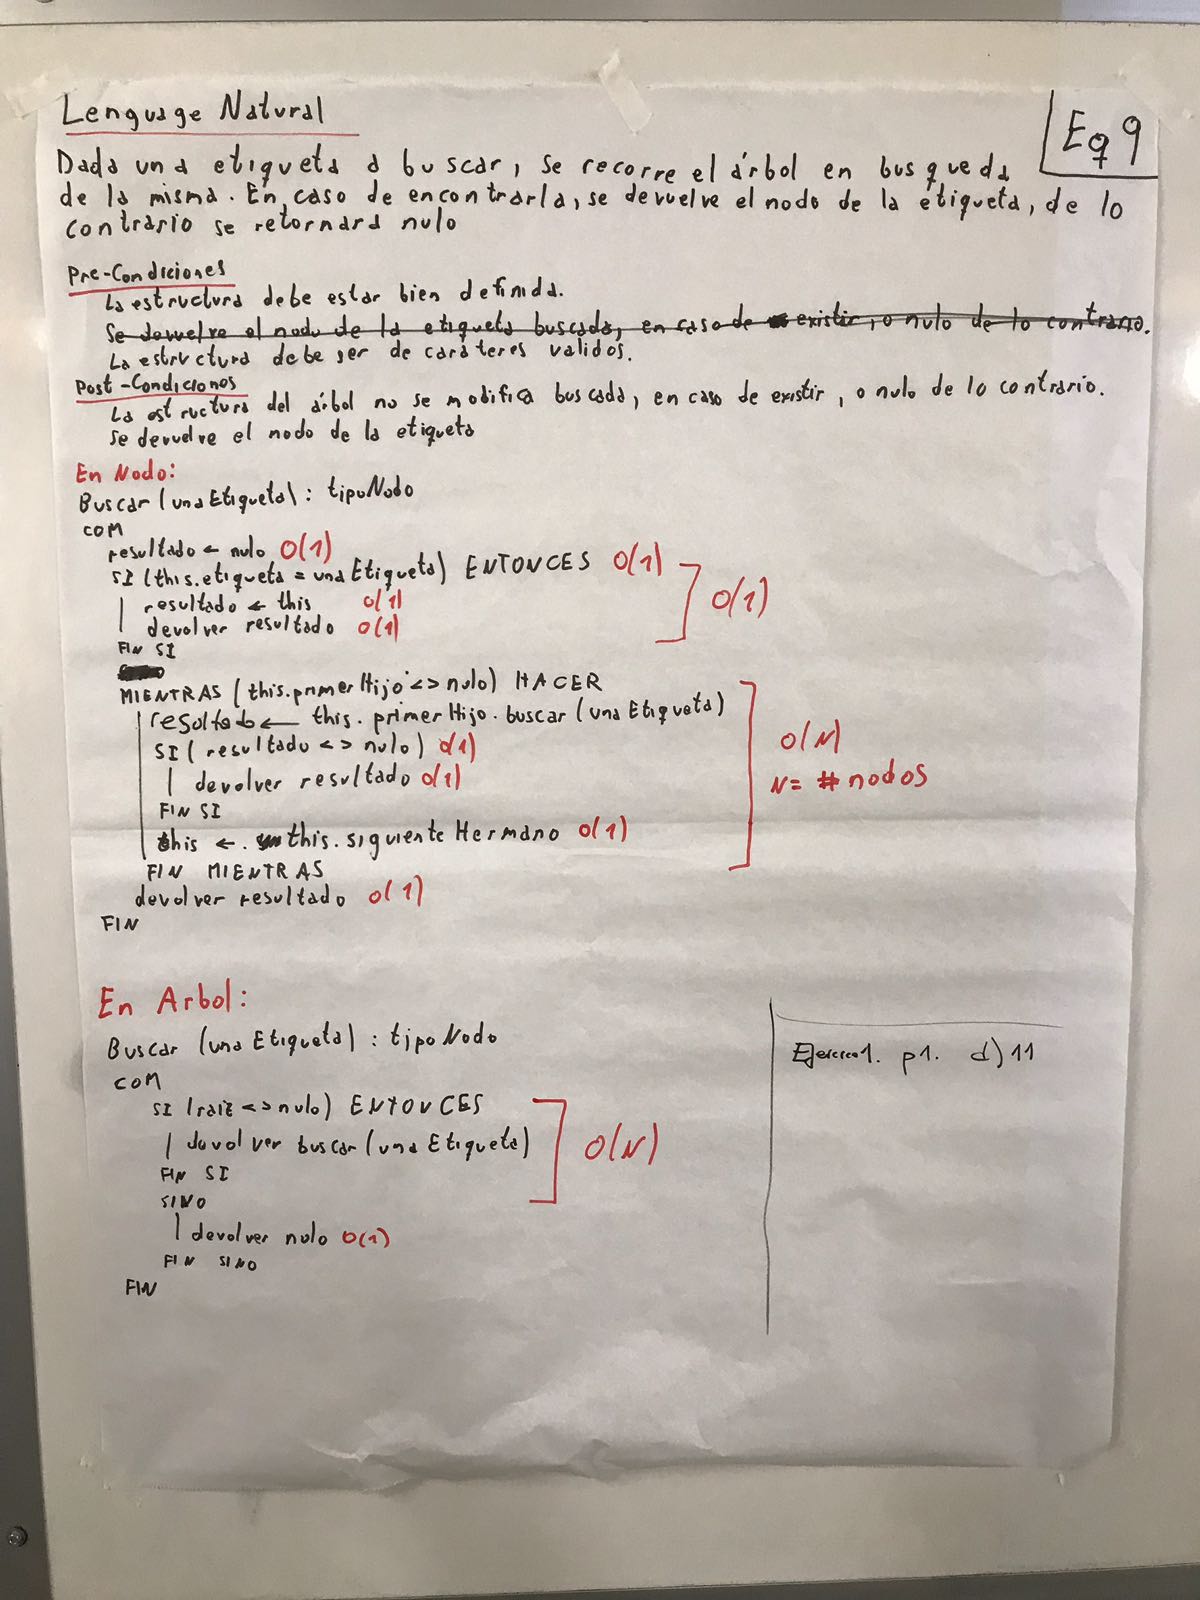 Lenguage Natural
Eq 9
Dada una etiqueta a buscar, se recorre el árbol en busqueda
de la misma. En caso de encontrarla, se devuelve el nodo de la etiqueta, de lo
contrario se retornara nulo
Pre-Condiciones
La estructura debe estar bien definida.
Se devuelve el nodo de la etiqueta buscada, en caso de existir, o nulo de lo contrario.
La estructura debe ser de caráteres validos.
Post-Condiciones
La estructura del árbol no se modifica buscada, en caso de existir, o nulo de lo contrario.
Se devuelve el nodo de la etiqueta
En Nodo:
Buscar (una Etiqueta) : tipoNodo
COM
resultado ← nulo O(1)
SI (this.etiqueta = una Etiqueta) ENTONCES O(1)
resultado ← this O(1)
devolver resultado O(1)
O(1)
FIN SI
MIENTRAS (this.primerHijo <> nulo) HACER
resultado ← this.primerHijo.buscar (una Etiqueta)
SI (resultado <> nulo) O(1)
devolver resultado O(1)
FIN SI
this ← this.siguiente Hermano O(1)
FIN MIENTRAS
O(N)
N= # nodos
devolver resultado O(1)
FIN
En Arbol:
Buscar (una Etiqueta) : tipo Nodo
COM
SI (raiz <> nulo) ENTONCES
devolver buscar (una Etiqueta)
FIN SI
O(N)
SINO
devolver nulo O(1)
FIN SINO
FIN
Ejercicio1. p1. d) 11